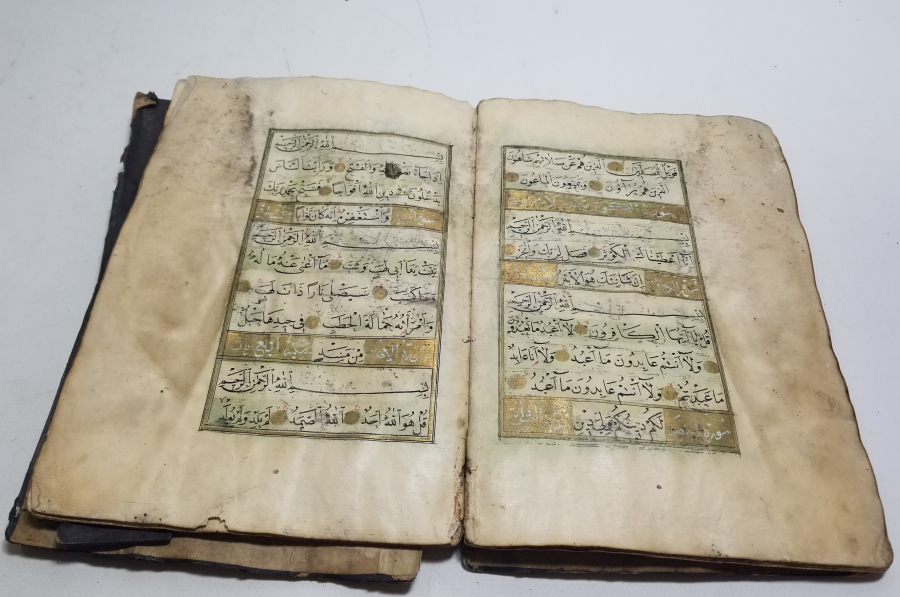 فويل للمصلين الذين هم عن صلاتهم ساهون
الذين هم يراؤن ويمنعون الماعون
سورة
بسم الله الرحمن الرحيم
انا اعطيناك الكوثر فصل لربك وانحر
ان شانئك هو الابتر
بسم الله الرحمن الرحيم
قل يا ايها الكافرون لا اعبد ما تعبدون
ولا انتم عابدون ما اعبد ولا انا عابد
ما عبدتم ولا انتم عابدون ما اعبد
سورة لكم دينكم ولي دين
بسم الله الرحمن الرحيم
اذا جاء نصر الله والفتح ورايت الناس
يدخلون في دين الله افواجا فسبح بحمد ربك
واستغفره انه كان توابا سورة
بسم الله الرحمن الرحيم
تبت يدا ابي لهب وتب ما اغنى عنه ماله
وما كسب سيصلى نارا ذات لهب
وامراته حمالة الحطب في جيدها حبل
من مسد اربع
بسم الله الرحمن الرحيم
قل هو الله احد الله الصمد لم يلد ولم يولد